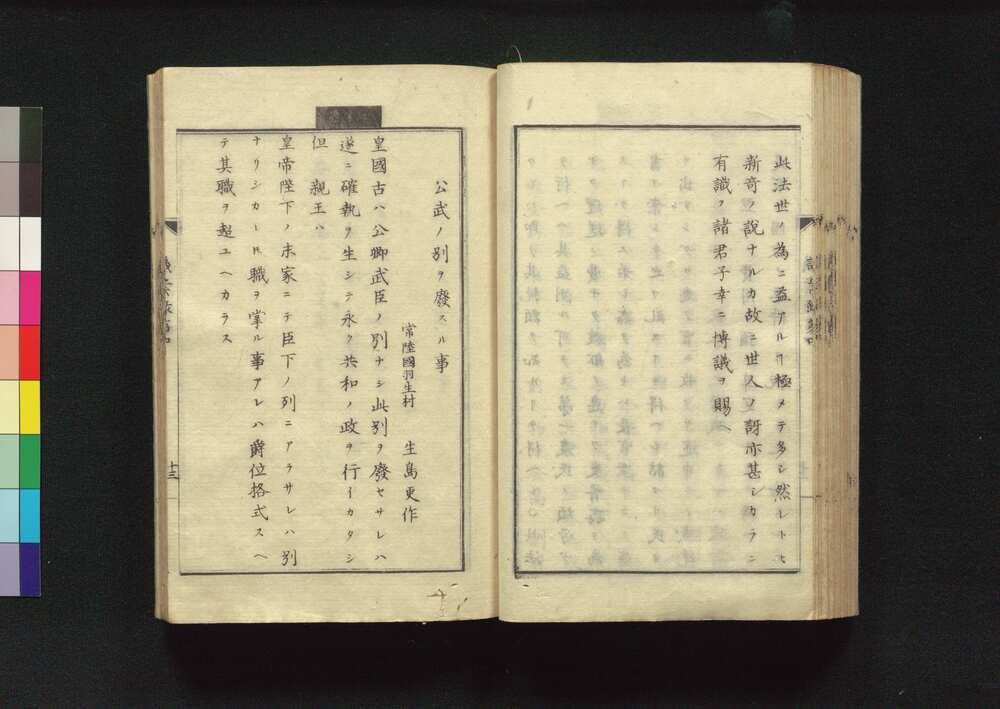 此法世ノ為ニ益アルヿ極メテ多シ然レトモ
新奇ノ説ナルカ故ニ世人ノ訝亦甚シカラン
有識ノ諸君子幸ニ博議ヲ賜ヘ
公武ノ別ヲ廢スル事
常陸國羽生村 生島更作
皇國古ハ公卿武臣ノ別ナシ此別ヲ廢セサレハ
遂ニ確執ヲ生シテ永ク共和ノ政ヲ行ーカタシ
但 親王ハ
皇帝陛下ノ末家ニテ臣下ノ列ニアラサレハ別
ナリシカレ𪜈職ヲ掌ル事アレハ爵位格式スヘ
テ其職ヲ超ユヘカラス
十三